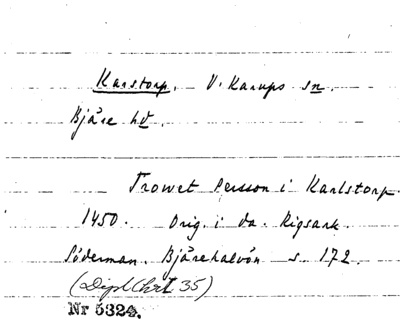 Karstorp. V. Karups sn
Bjäre hd.
Trowet Persson i Karlstorp
1450. Orig. i da. Rigsark.
Söderman. Bjärehalvön s. 172.
(Dipl Chrt 35)
Nr 5324.